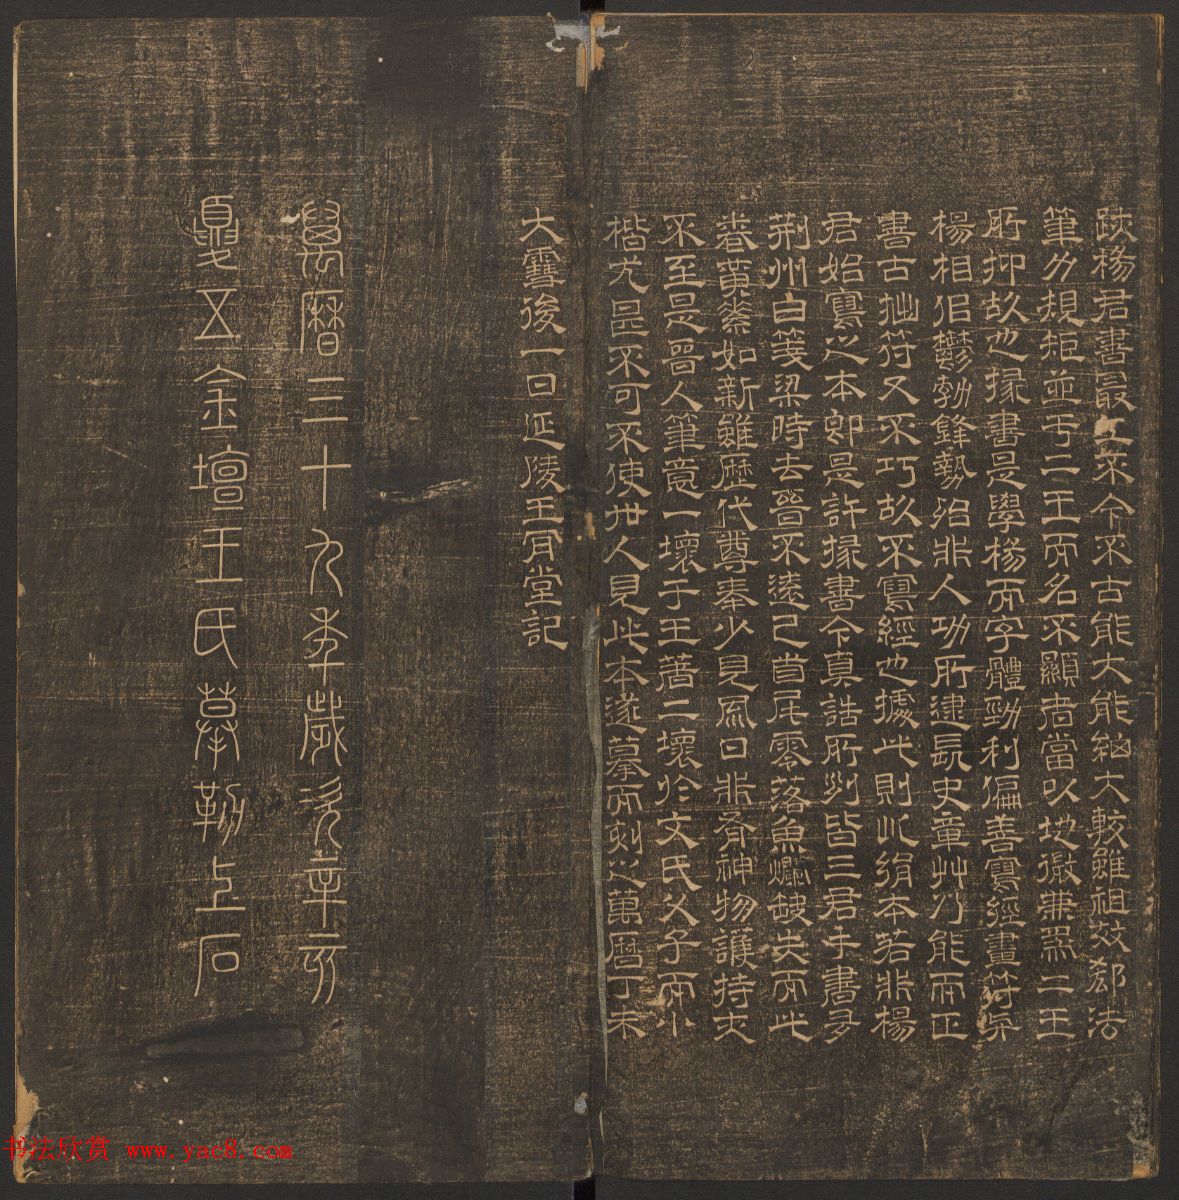 跋楊君書最工不今不古能大能細大較雖祖效郗法
筆力規矩並于二王而名不顯者當以地微兼爲二王
所抑故也掾書是學楊而字體勁利偏善寫經畫符與
楊相似鬱勃鋒勢殆非人功所逮長史章艸乃能而正
書古拙符又不巧故不寫經也據此則此絹本若非楊
君始寫之本卽是許掾書今真誥所列皆三君手書多
荆州白箋梁時去晉不遠已首尾零落魚爛缺失而此
卷黃素如新雖歷代尊奉少見風日非有神物護持支
不至是晉人筆意一壞于王著二壞於文氏父子而小
楷尤甚不可不使世人見此本遂摹而刻之萬曆丁未
大雪後一日延陵王肎堂記
萬曆三十九年歲次辛亥
夏五金壇王氏摹勒上石
书法欣赏 www.yac8.com